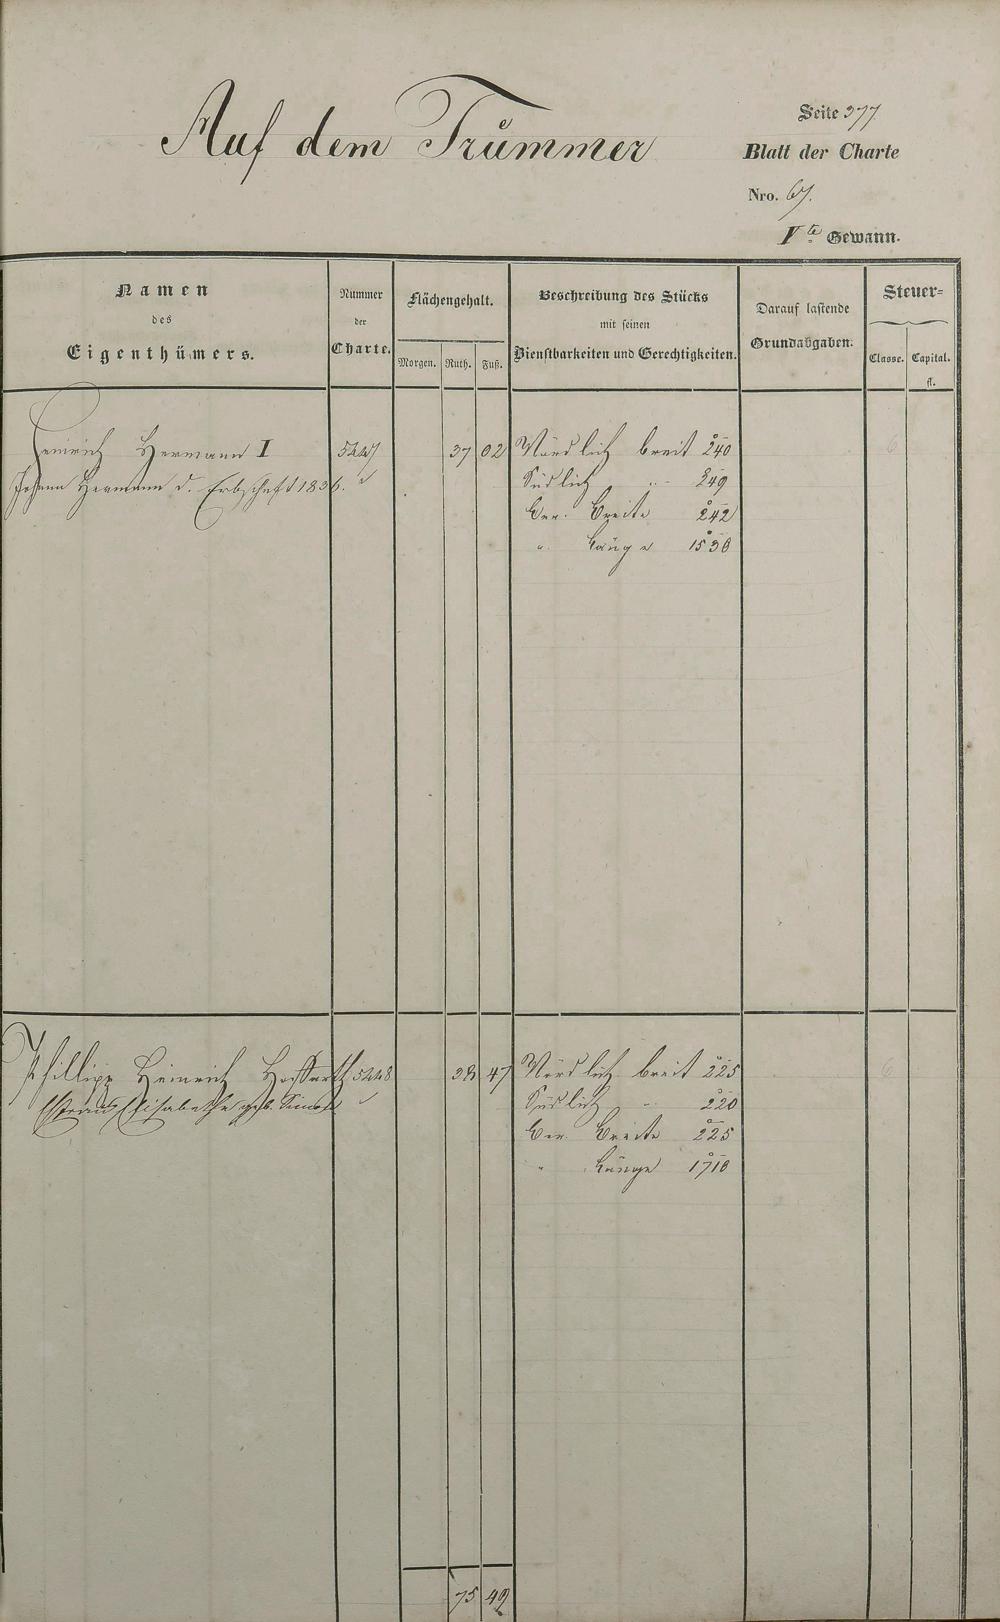 Auf dem Trümmer
Seite 377
Blatt der Charte
Nro. 67.
Vte Gewann.
Namen
des
Eigenthümers.
Nummer
der
Charte.
Flächengehalt.
Morgen. Ruth. Fuß.
Beschreibung des Stücks
mit seinen
Dienstbarkeiten und Gerechtigkeiten.
Darauf lastende
Grundabgaben.
Steuer-
Classe. Capital.
fl.
Heinrich Hermann I 5447 37 02 Nördlich breit 240 6
Johann Hermann d. Erbschaft 1836. Südlich " 249
Ber. Breite 242
" Länge 1530
Phillipp Heinrich Hossarth 5448 38 47 Nördlich breit 225 6
Elisabetha geb. Simon Südlich " 220
Ber. Breite 225
" Länge 1710
75 49